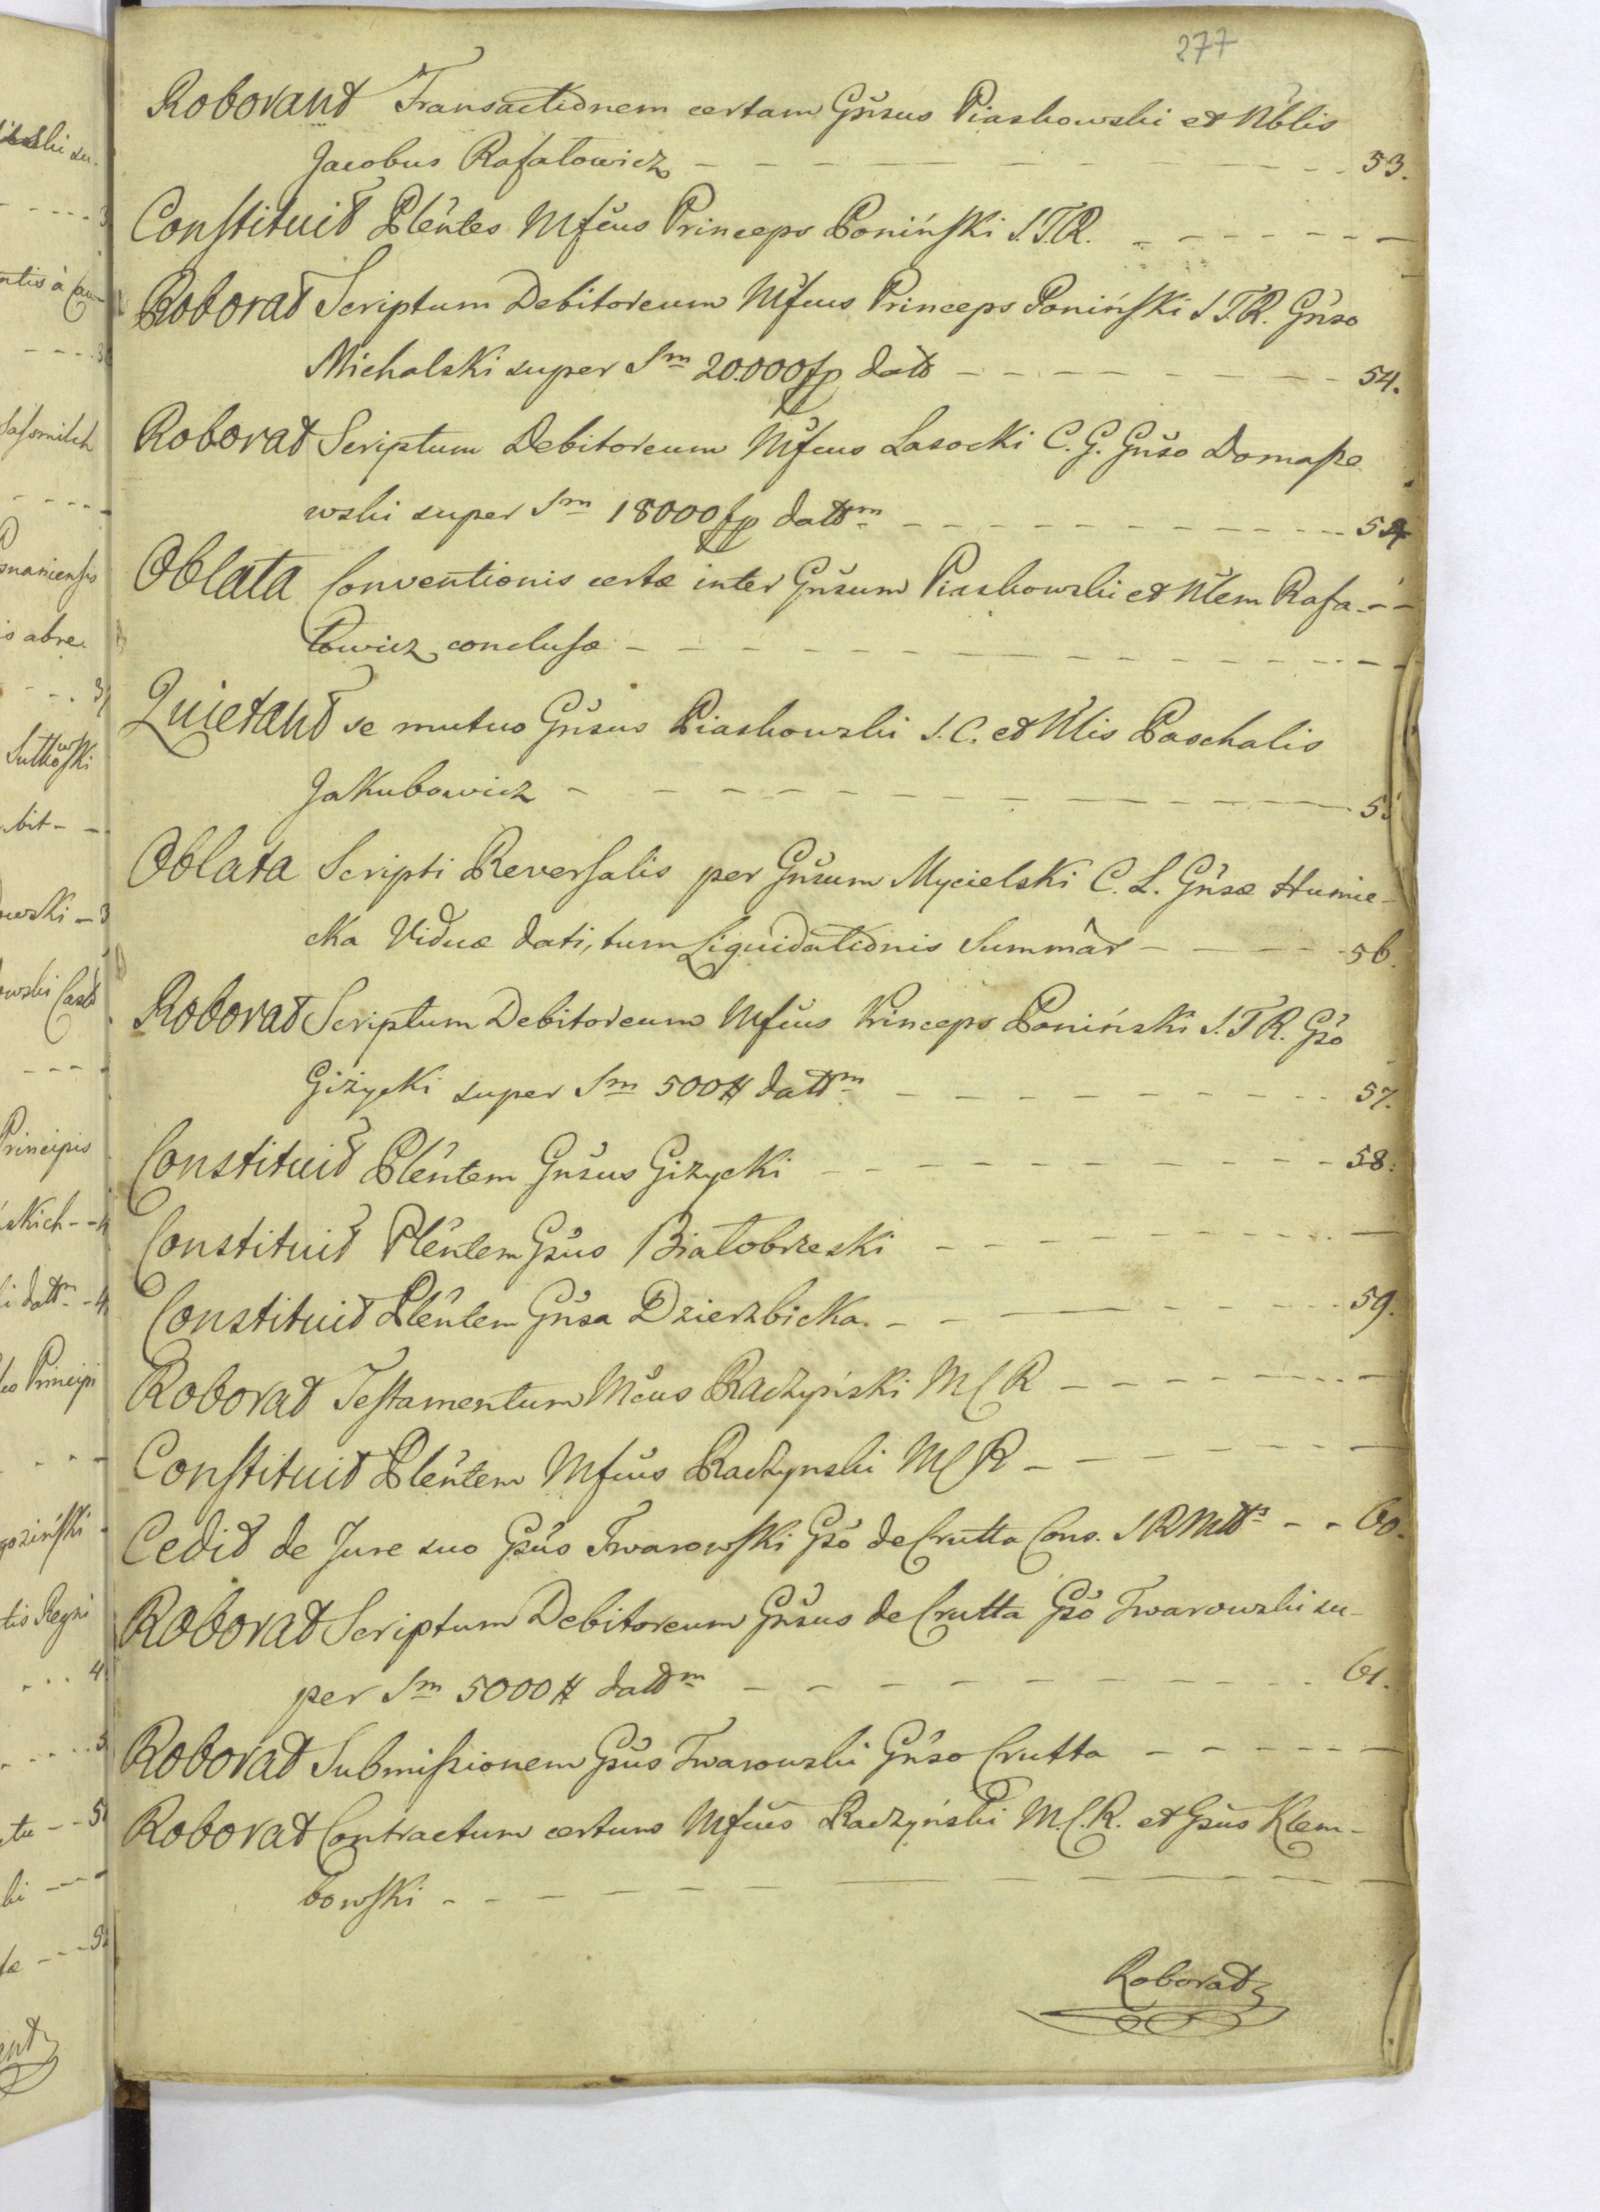 277
Roborant Transactionem certam Gnsus Piaskowski et Nblis
Jacobus Rafałowicz - - - - - - - - - - 53.
Constituit Plentes Mfcus Princeps Poniński S.T.R. - - - - - - -
Roborat Scriptum Debitoreum Mfcus Princeps Poniński S T.R. Gnso
Michalski super Sm 20.000 fp datt - - - - - - - - 54.
Roborat Scriptum Debitoreum Mfcus Lasocki C. G. Gnso Domasze
wski super Sm 18000 fp dattm - - - - - - - - - - 54
Oblata Conventionis certæ inter Gnsum Piaskowski et Nlem Rafa - -
łowicz conclusæ - - - - - - - - - - - -
Quietant se mutuo Gnsus Piaskowski S. C. et Nlis Paschalis
Jakubowicz - - - - - - - - - - - 5
Oblata Scripti Reversalis per Gnsum Mycielski C. L. Gnsæ Humie-
cka Viduæ dati, tum Liquidationis Summar - - - - - 56.
Roborat Scriptum Debitoreum Mfcus Princeps Poniński S. T R. Gso
Giżycki super Sm 500 # dattm - - - - - - - - - 57.
Constituit Plentem Gnsus Giżycki - - - - - - - - - - 58.
Constituit Plentem Gsus Białobrzeski - - - - - - - - -
Constituit Plentem Gnsa Dzierzbicka. - - - - - - - - 59.
Roborat Testamentum Mcus Raczyński M C R - - - - - - - -
Constituit Plentem Mfcus Raczynski M C R - - - - - - -
Cedit de Jure suo Gsus Twarowski Gso de Crutta Cons. S R Mtts - - 60.
Roborat Scriptum Debitoreum Gnsus de Crutta Gso Twarowski su-
per Sm 5000 # dattm - - - - - - - - - - - 61.
Roborat Submissionem Gsus Twarowski Gnso Crutta - - - - - -
Roborat Contractum certum Mfcus Raczyński M C. R. et Gsus Klem-
bowski - - - - - - - - - - - - -
Roborat